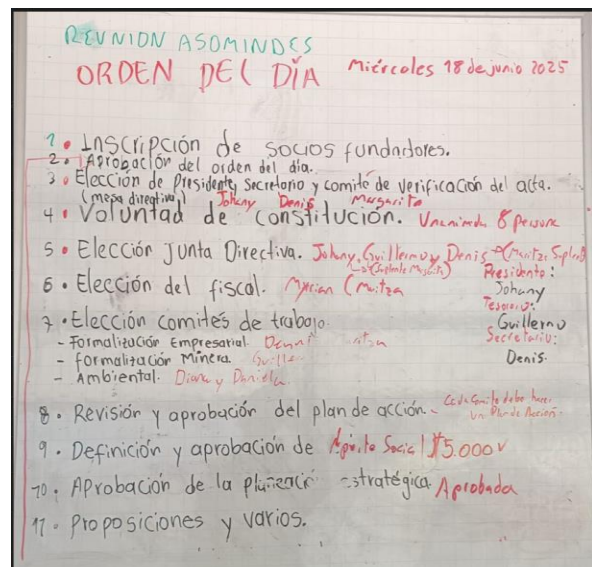 REUNION ASOMINDES
ORDEN DEL DÍA Miércoles 18 de junio 2025
1. Inscripción de socios fundadores.
2. Aprobación del orden del día.
3. Elección de Presidente, Secretario y comité de verificación del acta.
(mesa directiva) Johany Denis Margarita
4. Voluntad de constitución. Unanimeda 8 persona
5. Elección Junta Directiva. Johany, Guillermo y Denis (Maritza Suplent
(Suplente Margarita)
Presidente:
6. Elección del fiscal. Myrian (Maritza
Johany
Tesorero:
7. Elección comités de trabajo.
Guillermo
- Formalización Empresarial.
Secretario:
- Formalización Minera.
Denis.
- Ambiental. Diana y Daniela
8. Revisión y aprobación del plan de acción. Cada Comite debe hacer
un Plan de Acción.
9. Definición y aprobación de Aporte Social $5.000
10. Aprobación de la estratégica Aprobada
11. Proposiciones y varios.